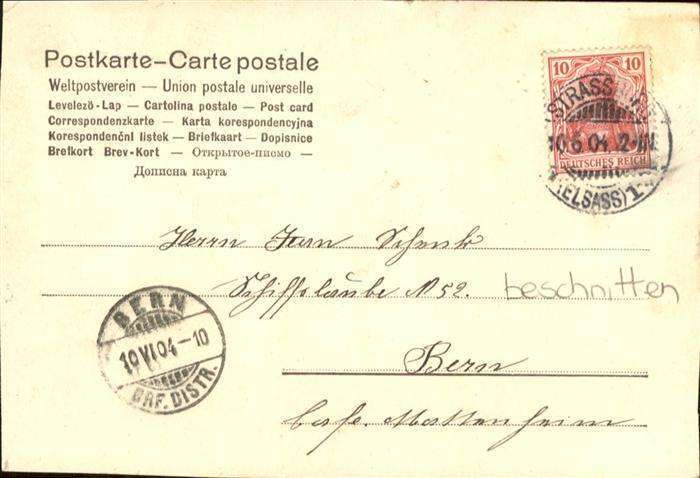 Postkarte–Carte postale
Weltpostverein — Union postale universelle
Levelező-Lap — Cartolina postale — Post card
Correspondenzkarte — Karta korespondencyjna
Korespondenční listek — Briefkaart — Dopisnice
Brefkort Brev-Kort — Открытое-писмо —
Дописна карта
10 10
DEUTSCHES REICH
STRASS
10 6 04 2-3N
(ELSASS) 1
Herrn Schenk
Schifflaube N 52.
beschnitten
Bern
BERN
10 VI 04 – 10
BRF. DISTR.